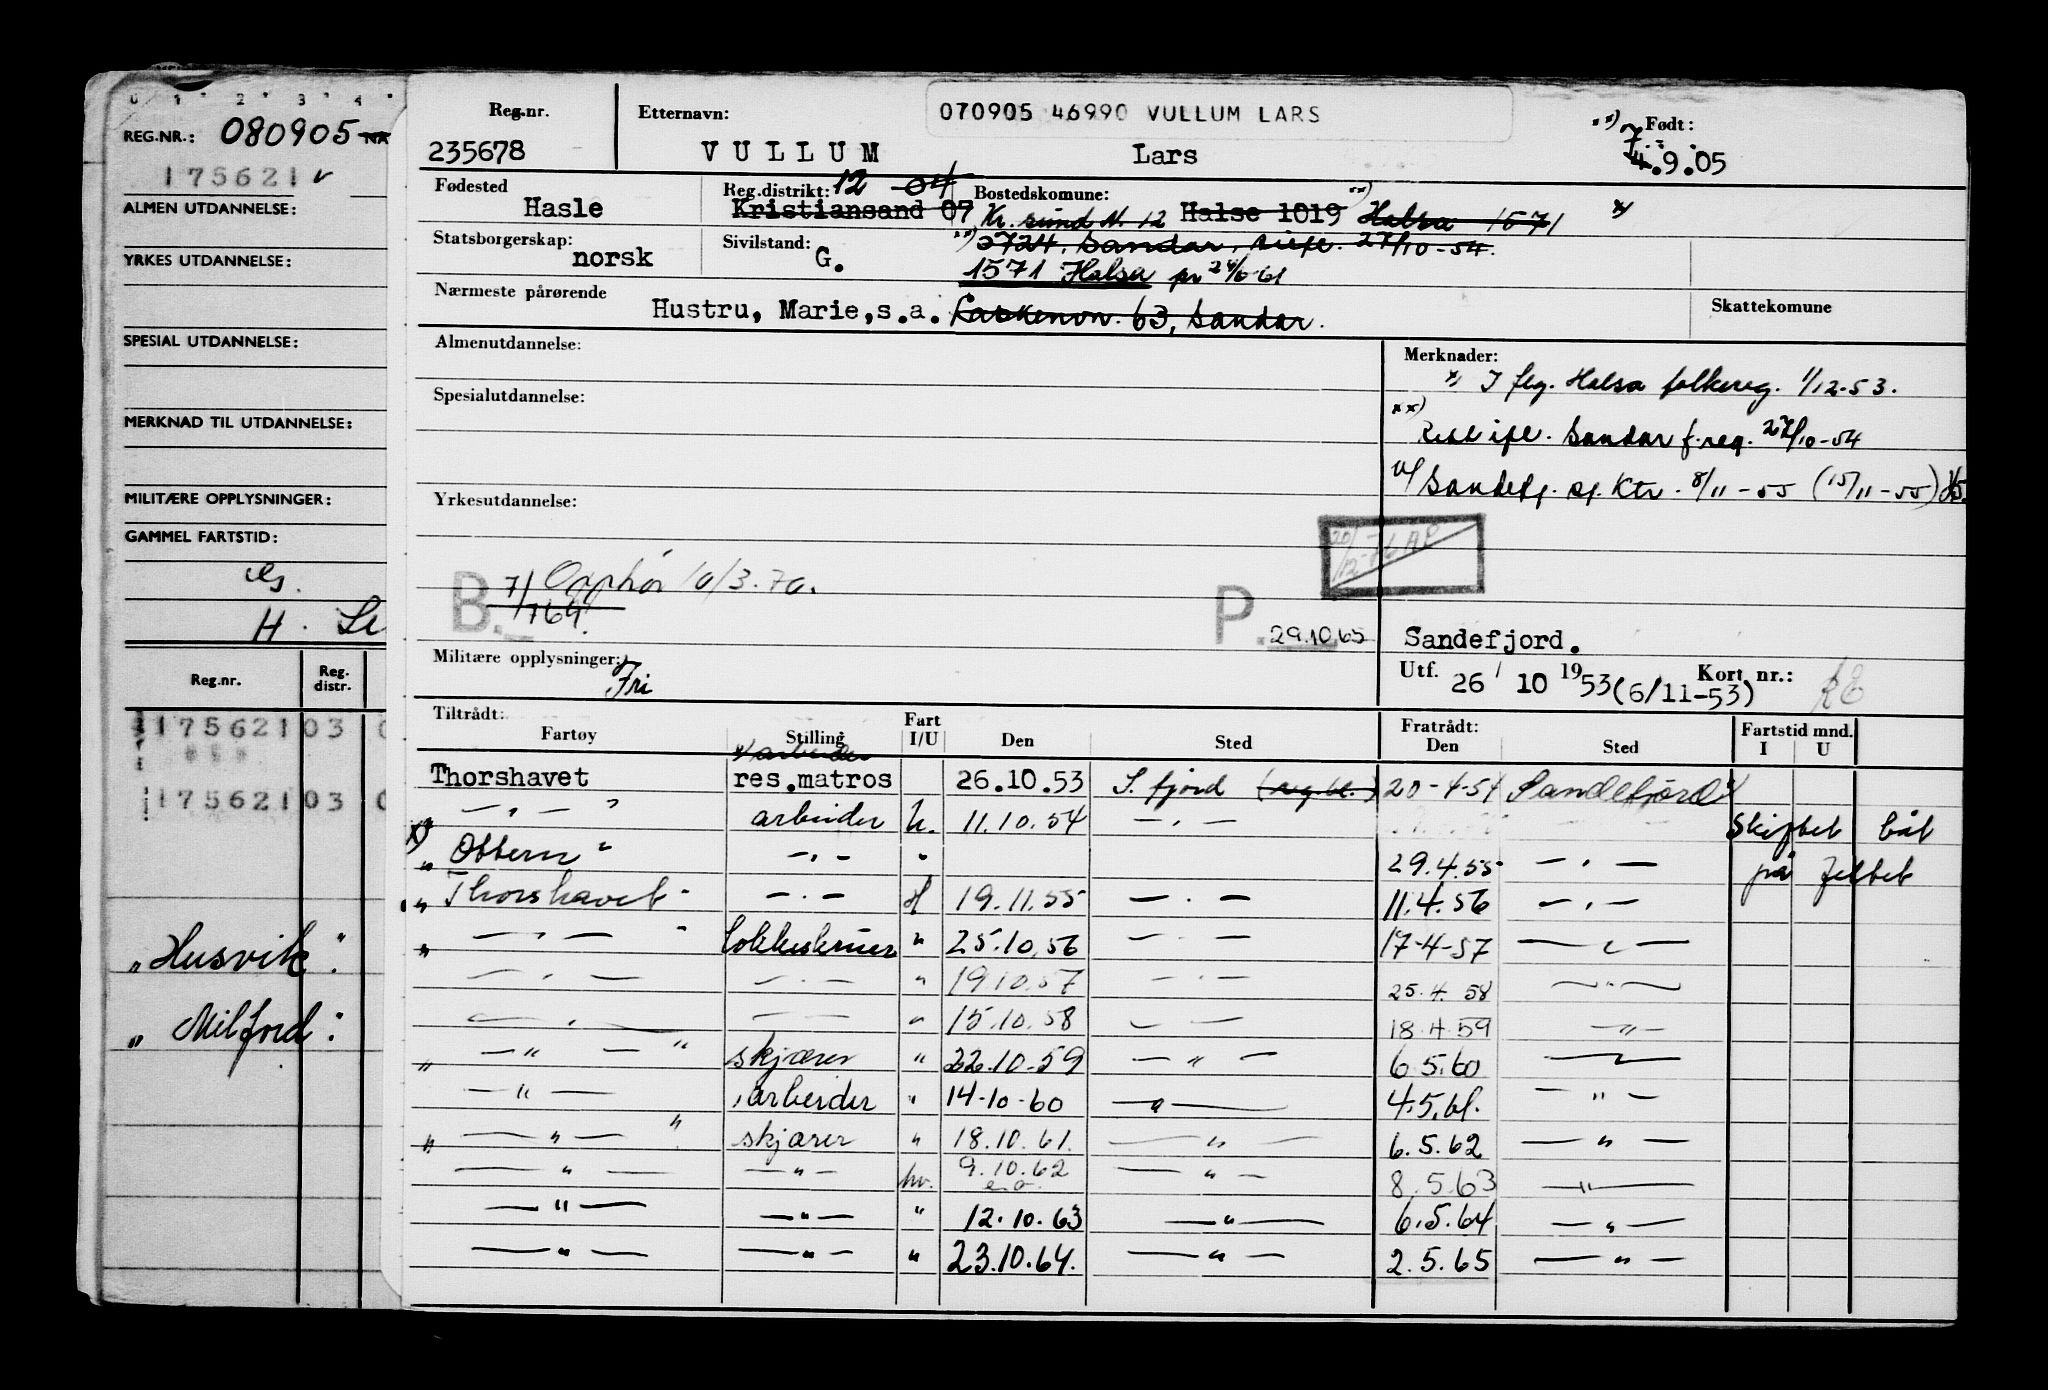 0 1 2 3 4
REG.NR.: 080905
175621
ALMEN UTDANNELSE:
YRKES UTDANNELSE:
SPESIAL UTDANNELSE:
MERKNAD TIL UTDANNELSE:
MILITÆRE OPPLYSNINGER:
GAMMEL FARTSTID:
H.
Reg.nr. Reg. distr.
175621 03
175621 03
"Husvik"
"Milford"
Reg.nr. Etternavn: 070905 46990 VULLUM LARS Født:
235678 VULLUM Lars xx) 7 4.9.05
Fødested Reg.distrikt: 12 04 Bostedskomune:
Hasle Kristiansand 07 Kr. sund N. 12 Halse 1019 xx) Halsa 1571 x)
Statsborgerskap: Sivilstand: xx) 2724, Sandar, 27/10-54.
norsk G. 1571 Halsa pr
Nærmeste pårørende
Hustru, Marie, s.a. 63, Sandar. Skattekomune
Almenutdannelse: Merknader:
x) I flg. Halsa folkereg. 1/12-53.
Spesialutdannelse: xx)
Sandar f.reg. 27/10-54
Sandefj. sj. Ktr. 8/11-55 (15/11-55)
Yrkesutdannelse:
20/12-76 AP
B. 7/769. Opphør 10/3.70. P. 29.10.65
Sandefjord.
Militære opplysninger: Fri
Utf. 26/10 1953 (6/11-53) Kort nr.:
Tiltrådt: Fratrådt: Fartstid mnd.
Fartøy Stilling Fart I/U Den Sted Den Sted I U
x) arbeider
Thorshavet res.matros 26.10.53 S. fjord 20-4-54 Sandefjord
— " — " arbeider h. 11.10.54 — " — Skiftet båt
x) "Obbern" — " — " 29.4.55 — " — på feltet
"Thorshavet" — " — H 19.11.55 — " — 11.4.56 — " —
" — " — " kokkeskruer " 25.10.56 — " — 17-4-57 — " —
— " — — " — " 19.10.57 — " — 25.4.58 — " —
— " — — " — " 15.10.58 — " — 18.4.59 — " —
" — " — " skjærer " 22.10.59 — " — 6.5.60 — " —
— " — arbeider " 14-10-60 — " — 4.5.61. — " —
" — " — " skjærer " 18.10.61. — " — 6.5.62 — " —
— " — — " — hv. 9.10.62 — " — 8.5.63 — " —
e.o.
— " — — " — " 12.10.63 — " — 6.5.64 — " —
— " — — " — " 23.10.64. — " — 2.5.65 — " —